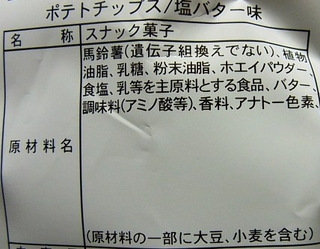 ポテトチップス/塩バター味
名 称 スナック菓子
馬鈴薯(遺伝子組換えでない)、植物
油脂、乳糖、粉末油脂、ホエイパウダー、
食塩、乳等を主原料とする食品、バター、
調味料(アミノ酸等)、香料、アナトー色素、
原材料名
(原材料の一部に大豆、小麦を含む)